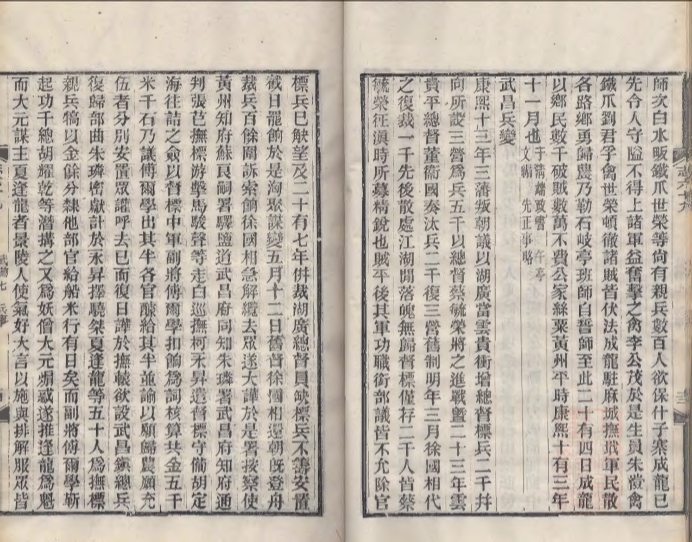 師次白水畈鐵爪世榮等尙有親兵數百人欲保什子寨成龍已
先令人守隘不得上諸軍益奮擊之禽李公茂於是生員朱愷禽
鐵爪劉君孚禽世榮頓徹諸賊皆伏法成龍駐麻城撫哦軍民散
各路鄉勇歸農乃勒石岐亭班師自誓師至此二十有四日成龍
以鄉民數千破賊數萬不費公家絲粟黃州平時康熙十有三年
十一月也
武昌兵變
康熙十三年三藩叛朝議以湖廣當雲貴衝增總督標兵二千幷
向所設三營爲兵五千以總督蔡毓榮將之進戰曁二十三年雲
貴平總督董衞國奏汰兵二千復三營舊制明年三月徐國相代
之復裁一千先後散處江湖閒落魄無歸督標僅存二千人皆蔡
毓榮征滇時所募精銳也賊平後其軍功職銜部議皆不允除官
標兵已觖望及二十有七年倂裁湖廣總督員缺標兵不籌安置
戒日罷餉於是洶聚謀變五月二十二日舊督徐國相還朝旣登舟
裁兵百餘鬨訴索餉徐國相急解纜去眾遂大譁於是署按察使
黃州知府蘇良嗣署驛鹽道武昌府同知朱璘署武昌府知府通
判張芑撫標游擊馬駿聲等走白巡撫柯永昇遣督標守備胡定
海往詰之僉以督標中軍副將傅爾學扣餉爲詞核算共金五千
米千石乃議傅爾學出其半各官釀給其半並諭以願歸農願充
伍者分別安置眾讙呼去已而復日譁於撫轅欲設武昌鎭總兵
復歸部曲朱璘密獻計於永昇擇驍桀夏逢龍等五十人爲撫標
親兵犒以金餘分隸他部官給船米行有日矣而副將傅爾學靳
起功千總胡耀乾等潛搆之又爲妖僧大元煽惑遂推逢龍爲魁
而大元謀主夏逢龍者景陵人使氣好大言以施與排解服眾皆